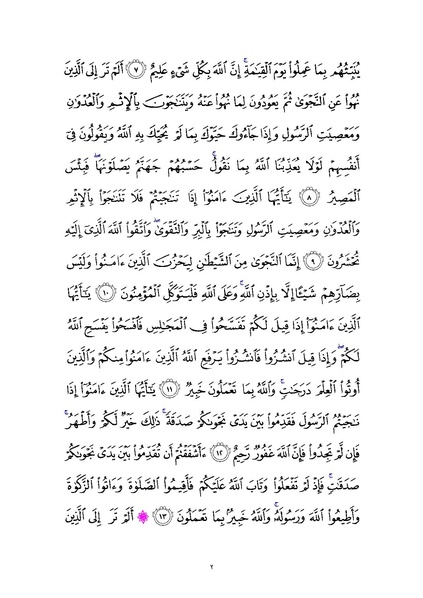 يُنَبِّئُهُم بِمَا عَمِلُوا۟ يَوْمَ ٱلْقِيَـٰمَةِ ۚ إِنَّ ٱللَّهَ بِكُلِّ شَىْءٍ عَلِيمٌ ﴿٧﴾ أَلَمْ تَرَ إِلَى ٱلَّذِينَ
نُهُوا۟ عَنِ ٱلنَّجْوَىٰ ثُمَّ يَعُودُونَ لِمَا نُهُوا۟ عَنْهُ وَيَتَنَـٰجَوْنَ بِٱلْإِثْمِ وَٱلْعُدْوَٰنِ
وَمَعْصِيَتِ ٱلرَّسُولِ وَإِذَا جَآءُوكَ حَيَّوْكَ بِمَا لَمْ يُحَيِّكَ بِهِ ٱللَّهُ وَيَقُولُونَ فِىٓ
أَنفُسِهِمْ لَوْلَا يُعَذِّبُنَا ٱللَّهُ بِمَا نَقُولُ ۚ حَسْبُهُمْ جَهَنَّمُ يَصْلَوْنَهَا ۖ فَبِئْسَ
ٱلْمَصِيرُ ﴿٨﴾ يَـٰٓأَيُّهَا ٱلَّذِينَ ءَامَنُوٓا۟ إِذَا تَنَـٰجَيْتُمْ فَلَا تَتَنَـٰجَوْا۟ بِٱلْإِثْمِ
وَٱلْعُدْوَٰنِ وَمَعْصِيَتِ ٱلرَّسُولِ وَتَنَـٰجَوْا۟ بِٱلْبِرِّ وَٱلتَّقْوَىٰ ۖ وَٱتَّقُوا۟ ٱللَّهَ ٱلَّذِىٓ إِلَيْهِ
تُحْشَرُونَ ﴿٩﴾ إِنَّمَا ٱلنَّجْوَىٰ مِنَ ٱلشَّيْطَـٰنِ لِيَحْزُنَ ٱلَّذِينَ ءَامَنُوا۟ وَلَيْسَ
بِضَآرِّهِمْ شَيْـًٔا إِلَّا بِإِذْنِ ٱللَّهِ ۚ وَعَلَى ٱللَّهِ فَلْيَتَوَكَّلِ ٱلْمُؤْمِنُونَ ﴿١٠﴾ يَـٰٓأَيُّهَا
ٱلَّذِينَ ءَامَنُوٓا۟ إِذَا قِيلَ لَكُمْ تَفَسَّحُوا۟ فِى ٱلْمَجَـٰلِسِ فَٱفْسَحُوا۟ يَفْسَحِ ٱللَّهُ
لَكُمْ ۖ وَإِذَا قِيلَ ٱنشُزُوا۟ فَٱنشُزُوا۟ يَرْفَعِ ٱللَّهُ ٱلَّذِينَ ءَامَنُوا۟ مِنكُمْ وَٱلَّذِينَ
أُوتُوا۟ ٱلْعِلْمَ دَرَجَـٰتٍ ۚ وَٱللَّهُ بِمَا تَعْمَلُونَ خَبِيرٌ ﴿١١﴾ يَـٰٓأَيُّهَا ٱلَّذِينَ ءَامَنُوٓا۟ إِذَا
نَـٰجَيْتُمُ ٱلرَّسُولَ فَقَدِّمُوا۟ بَيْنَ يَدَىْ نَجْوَىٰكُمْ صَدَقَةً ۚ ذَٰلِكَ خَيْرٌ لَّكُمْ وَأَطْهَرُ ۚ
فَإِن لَّمْ تَجِدُوا۟ فَإِنَّ ٱللَّهَ غَفُورٌ رَّحِيمٌ ﴿١٢﴾ ءَأَشْفَقْتُمْ أَن تُقَدِّمُوا۟ بَيْنَ يَدَىْ نَجْوَىٰكُمْ
صَدَقَـٰتٍ ۚ فَإِذْ لَمْ تَفْعَلُوا۟ وَتَابَ ٱللَّهُ عَلَيْكُمْ فَأَقِيمُوا۟ ٱلصَّلَوٰةَ وَءَاتُوا۟ ٱلزَّكَوٰةَ
وَأَطِيعُوا۟ ٱللَّهَ وَرَسُولَهُۥ ۚ وَٱللَّهُ خَبِيرٌۢ بِمَا تَعْمَلُونَ ﴿١٣﴾ ۞ أَلَمْ تَرَ إِلَى ٱلَّذِينَ
٢